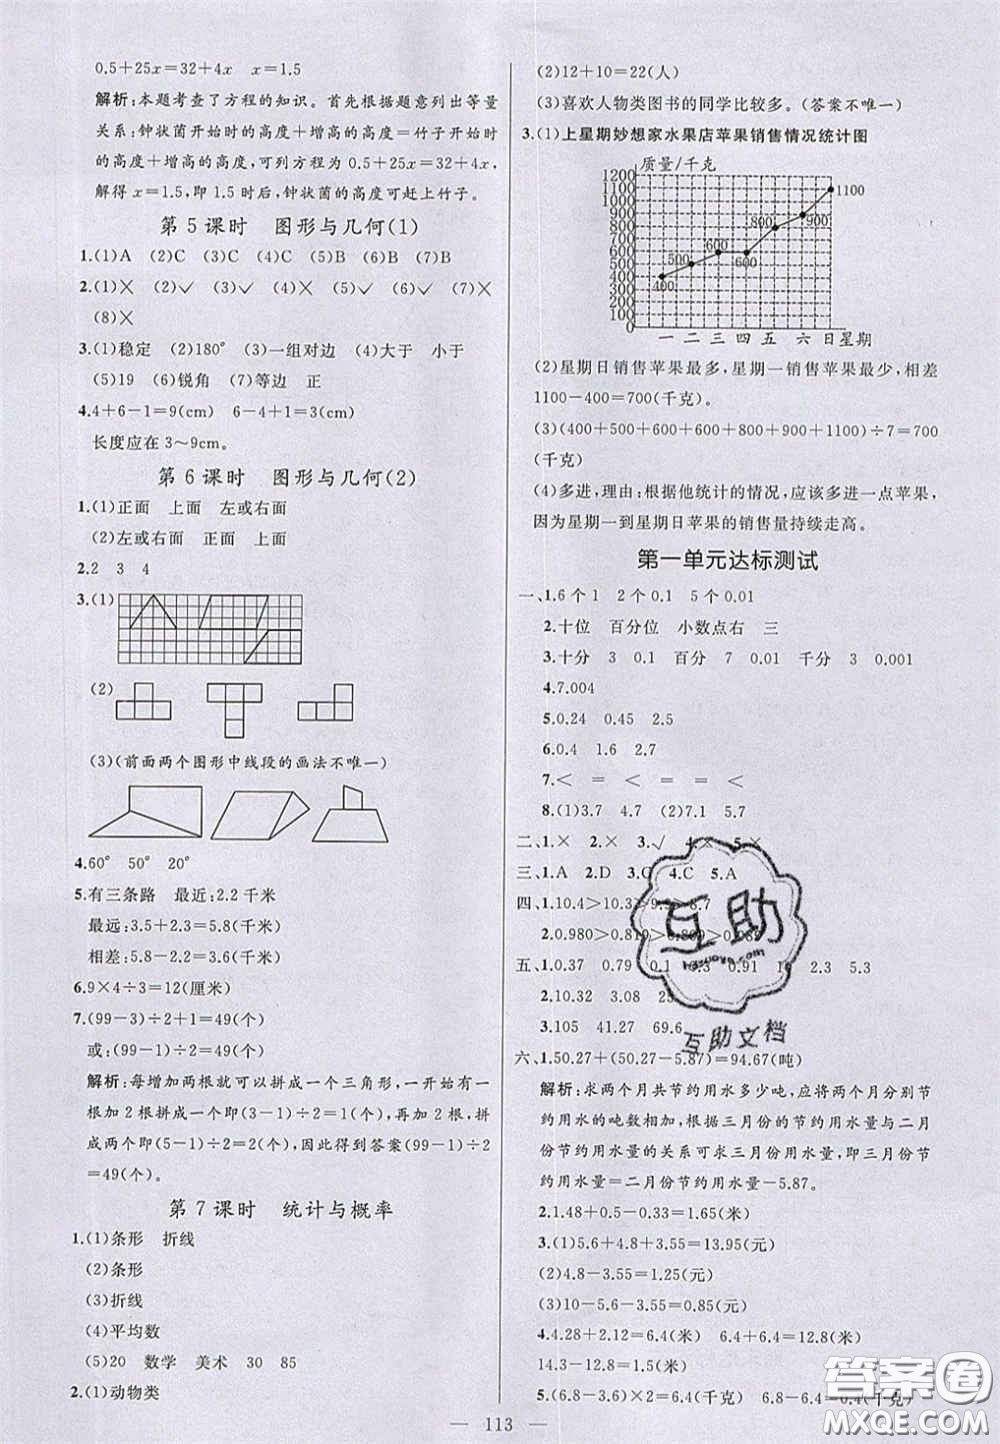 0.5+25x=32+4x　x=1.5
解析:本题考查了方程的知识。首先根据题意列出等量
关系:钟状菌开始时的高度+增高的高度=竹子开始时
的高度+增高的高度,可列方程为 0.5+25x=32+4x,
解得 x=1.5,即 1.5 时后,钟状菌的高度可赶上竹子。
第 5 课时　图形与几何(1)
1.(1)A　(2)C　(3)C　(4)C　(5)B　(6)B　(7)B
2.(1)×　(2)✓　(3)✓　(4)×　(5)✓　(6)✓　(7)×
(8)×
3.(1)稳定　(2)180°　(3)一组对边　(4)大于　小于
(5)19　(6)锐角　(7)等边　正
4.4+6-1=9(cm)　6-4+1=3(cm)
长度应在 3~9cm。
第 6 课时　图形与几何(2)
1.(1)正面　上面　左或右面
(2)左或右面　正面　上面
2.2　3　4
3.(1)
(2)
(3)(前面两个图形中线段的画法不唯一)
4.60°　50°　20°
5.有三条路　最近:2.2 千米
最远:3.5+2.3=5.8(千米)
相差:5.8-2.2=3.6(千米)
6.9×4÷3=12(厘米)
7.(99-3)÷2+1=49(个)
或:(99-1)÷2=49(个)
解析:每增加两根就可以拼成一个三角形,一开始有一
根加 2 根拼成一个即(3-1)÷2=1(个),再加 2 根,拼
成两个即(5-1)÷2=2(个),因此得到答案(99-1)÷2
=49(个)。
第 7 课时　统计与概率
1.(1)条形　折线
(2)条形
(3)折线
(4)平均数
(5)20　数学　美术　30　85
2.(1)动物类
(2)12+10=22(人)
(3)喜欢人物类图书的同学比较多。(答案不唯一)
3.(1)上星期妙想家水果店苹果销售情况统计图
质量/千克
1200
1100
1000
900
800
700
600
500
400
300
200
100
0
400
500
600
600
800
900
1100
一 二 三 四 五 六 日 星期
(2)星期日销售苹果最多,星期一销售苹果最少,相差
1100-400=700(千克)。
(3)(400+500+600+600+800+900+1100)÷7=700
(千克)
(4)多进,理由:根据他统计的情况,应该多进一点苹果,
因为星期一到星期日苹果的销售量持续走高。
第一单元达标测试
一、1.6 个 1　2 个 0.1　5 个 0.01
2.十位　百分位　小数点右　三
3.十分　3　0.1　百分　7　0.01　千分　3　0.001
4.7.004
5.0.24　0.45　2.5
6.0.4　1.6　2.7
7.<　=　<　=　<　<
8.(1)3.7　4.7　(2)7.1　5.7
二、1.×　2.×　3.✓　4.×　5.×
三、1.A　2.D　3.C　4.C　5.A
四、1.10.4>10.3>9.　8.7
2.0.980>0.819>0.8　>0.089
五、1.0.37　0.79　0.1　0.91　16　2.3　5.3
2.10.32　3.08
3.105　41.27　69.6
六、1.50.27+(50.27-5.87)=94.67(吨)
解析:求两个月共节约用水多少吨,应将两个月分别节
约用水的吨数相加,根据三月份的节约用水量与二月
份节约用水量的关系可求出三月份的用水量,即三月份节
约用水量=二月份节约用水量-5.87。
2.1.48+0.5-0.33=1.65(米)
3.(1)5.6+4.8+3.55=13.95(元)
(2)4.8-3.55=1.25(元)
(3)10-5.6-3.55=0.85(元)
4.4.28+2.12=6.4(米)　6.4+6.4=12.8(米)
14.3-12.8=1.5(米)
5.(6.8-3.6)×2=6.4(千克)　6.8-6.4=0.4(千克)
113
互助
互助文档
答案圈
MXQE.COM